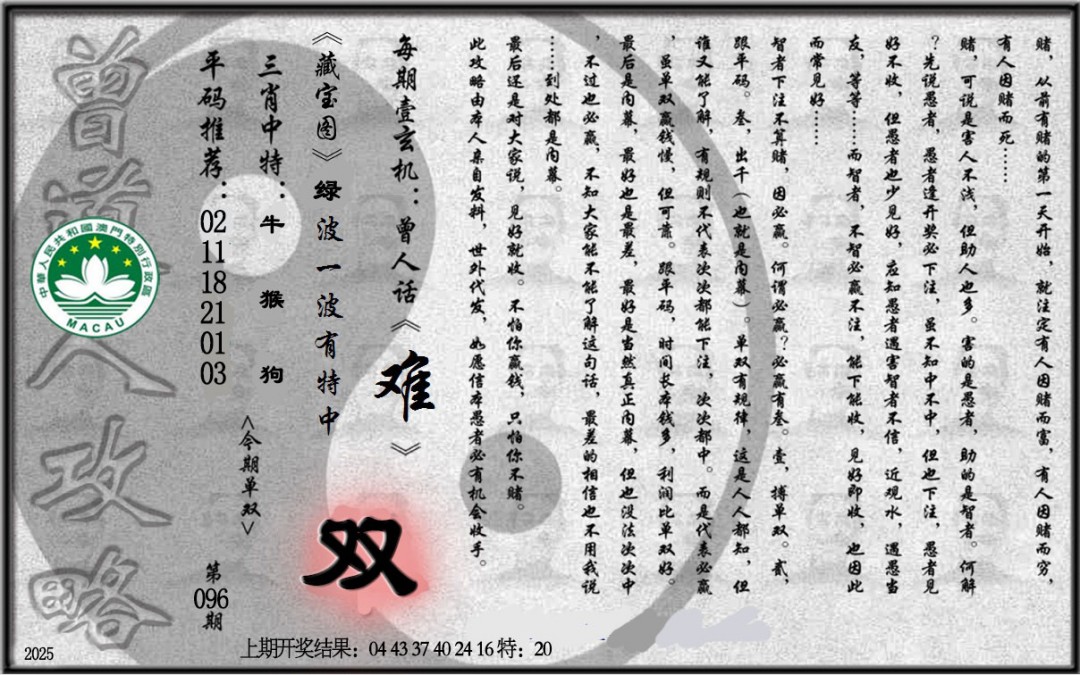 赌，从前有赌的第一天开始，就注定有人因赌而富，有人因赌而穷，
有人因赌而死……
赌，可说是害人不浅，但助人也多。害的是愚者，助的是智者。何解
？先说愚者，愚者逢开奖必下注，虽不知中不中，但也下注，愚者见
好不收，但愚者也少见好，应知愚者遇害智者不信，近观水，遇愚当
友，等等……而智者，不智必赢不注，能下能收，见好即收，也因此
而常见好……
智者下注不算赌，因必赢。何谓必赢？必赢有叁。壹，搏单双。贰，
跟平码。叁，出千（也就是内幕）。单双有规律，这是人人都知，但
谁又能了解，有规则不代表次次都能下注，次次都中。而是代表必赢
，虽单双赢钱慢，但可靠。跟平码，时间长本钱多，利润比单双好。
最后是内幕，最好也是最差，最好是当然真正内幕，但也没法次次中
，不过也必赢，不知大家能不能了解这句话，最差的相信也不用我说
……到处都是内幕。
最后还是对大家说，见好就收。不怕你赢钱，只怕你不赌。
此攻略由本人亲自发料，世外代发，如愿信本愚者必有机会收手。
每期壹玄机：曾人话《难》
《藏宝图》绿波一波有特中
双
三肖中特：牛 猴 狗
<今期单双>
平码推荐：02 11 18 21 01 03
第096期
曾道人攻略
中華人民共和國澳門特別行政區
MACAU
2025
上期开奖结果：04 43 37 40 24 16 特：20